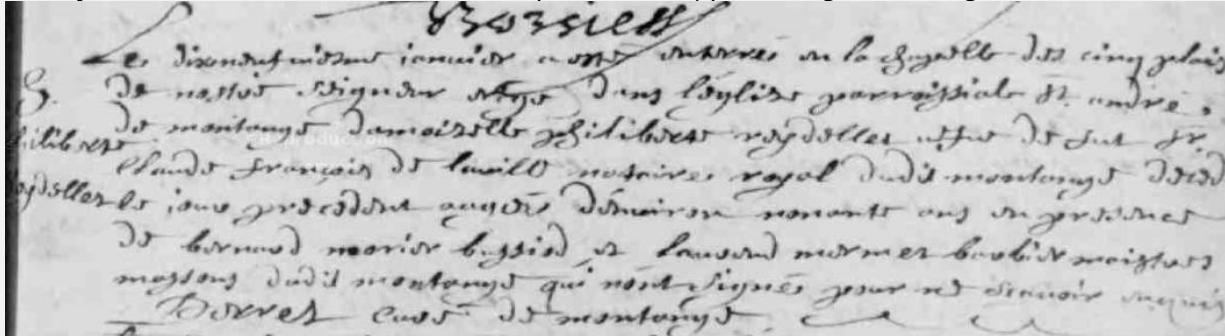 Le dixneufviesme janvier a esté enterrée en la chapelle des cinq plaies
de nostre Seigneur erigé dans l'églize parroissiale St andré
de montange damoizelle philiberte reydellet usue de fut Sr
Claude François de lauille notaire royal dudit montange deced
le jour precedent aagée denuiron nonante ans en presence
de bernard morier bussiod et Laurend mermet barbier maistres
massons dudit montange qui n'ont signés pour ne scauoir enquis
Borret curé de montange
philiberte
reydellet